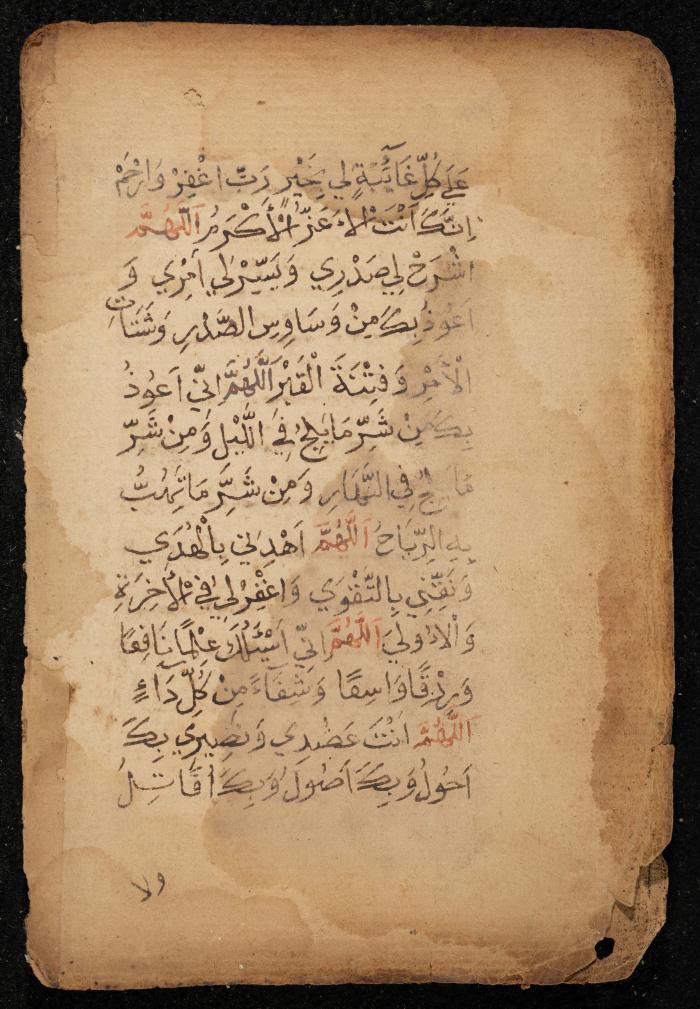 عَلَى كُلِّ غَآئِبَةٍ لِي بِخَيْرٍ رَبِّ اغْفِرْ وَارْحَمْ
اِنَّكَ اَنْتَ الْاَعَزُّ الْأَكْرَمُ اَللّٰهُمَّ
اشْرَحْ لِي صَدْرِي وَيَسِّرْلِي اَمْرِي وَ
اَعُوذُ بِكَ مِنْ وَسَاوِسِ الصَّدْرِ وَشَتَاتِ
الْأَمْرِ وَفِتْنَةَ الْقَبْرِ اَللّٰهُمَّ اِنِّي اَعُوذُ
بِكَ مِنْ شَرِّ مَا يَلِجُ فِي اللَّيْلِ وَمِنْ شَرِّ
مَا يَلِجُ فِي النَّهَارِ وَمِنْ شَرِّ مَا تَهُبُّ
بِهِ الرِّيَاحُ اَللّٰهُمَّ اَهْدِنِي بِالْهُدَي
وَنَقِّنِي بِالتَّقْوَي وَاغْفِرْلِي فِي الْأٰخِرَةِ
وَالْاُولَيٰ اَللّٰهُمَّ اِنِّي اَسْئَلُكَ عِلْمًا نَافِعًا
وَرِزْقًا وَاسِعًا وَشِفَآءً مِنْ كُلِّ دَآءٍ
اَللّٰهُمَّ اَنْتَ عَضُدِي وَنَصِيرِي بِكَ
اَحُولُ وَبِكَ اَصُولُ وَبِكَ اُقَاتِلُ
ولا